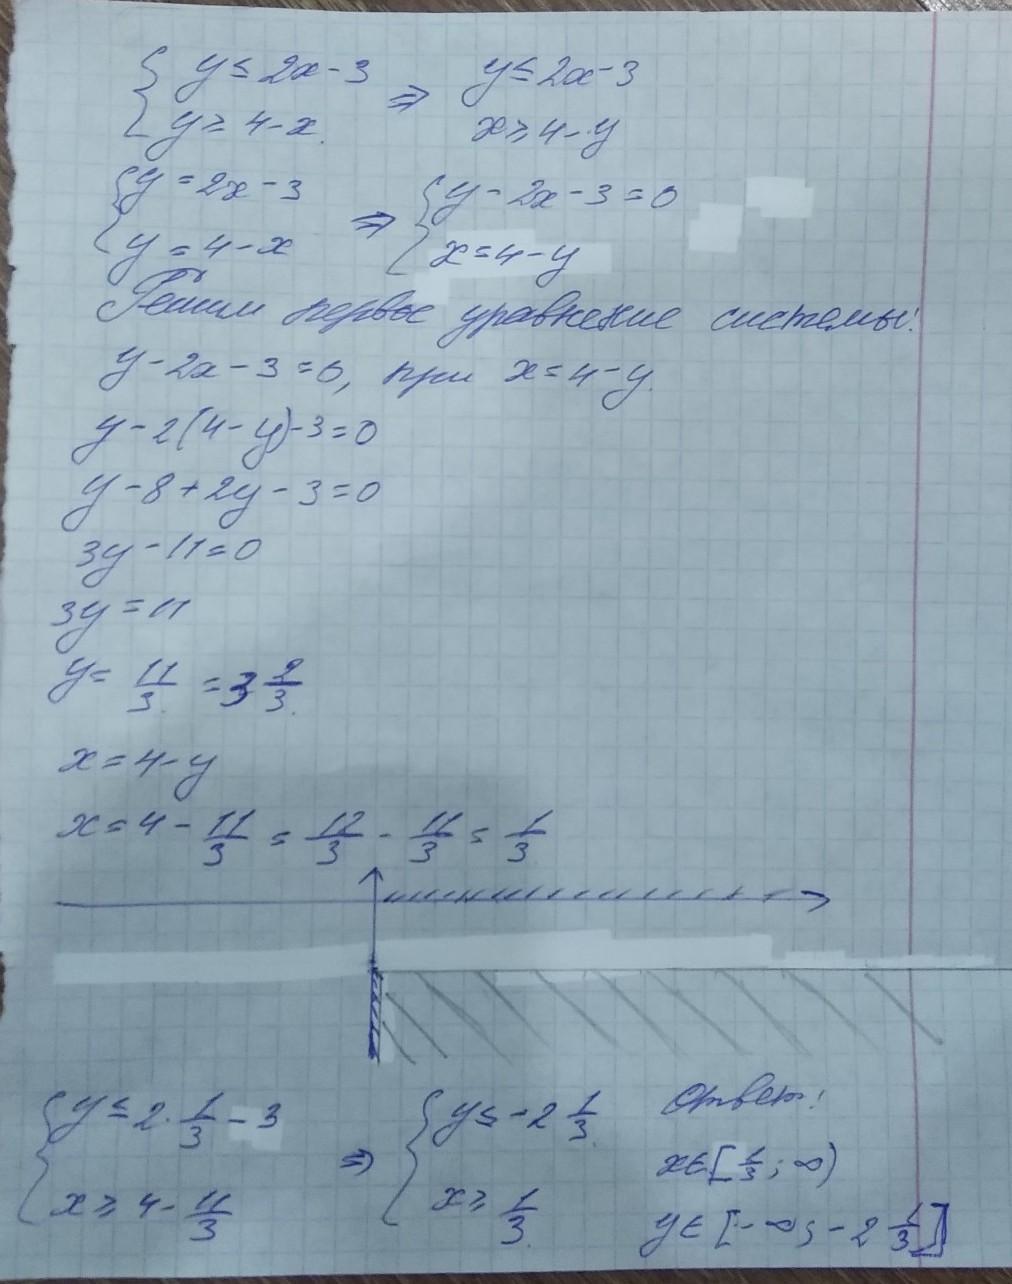 { y ≤ 2x - 3 ⇒ y ≤ 2x - 3
{ y ≥ 4 - x. x ≥ 4 - y
{ y = 2x - 3 ⇒ { y - 2x - 3 = 0
{ y = 4 - x { x = 4 - y
Решим первое уравнение системы:
y - 2x - 3 = 0, при x = 4 - y.
y - 2(4 - y) - 3 = 0
y - 8 + 2y - 3 = 0
3y - 11 = 0
3y = 11
y = 11/3 = 3 2/3.
x = 4 - y
x = 4 - 11/3 = 12/3 - 11/3 = 1/3
{ y ≤ 2 · 1/3 - 3 ⇒ { y ≤ -2 1/3. Ответ:
{ x ≥ 4 - 11/3 { x ≥ 1/3. x ∈ [1/3; ∞)
y ∈ [-∞; -2 1/3]